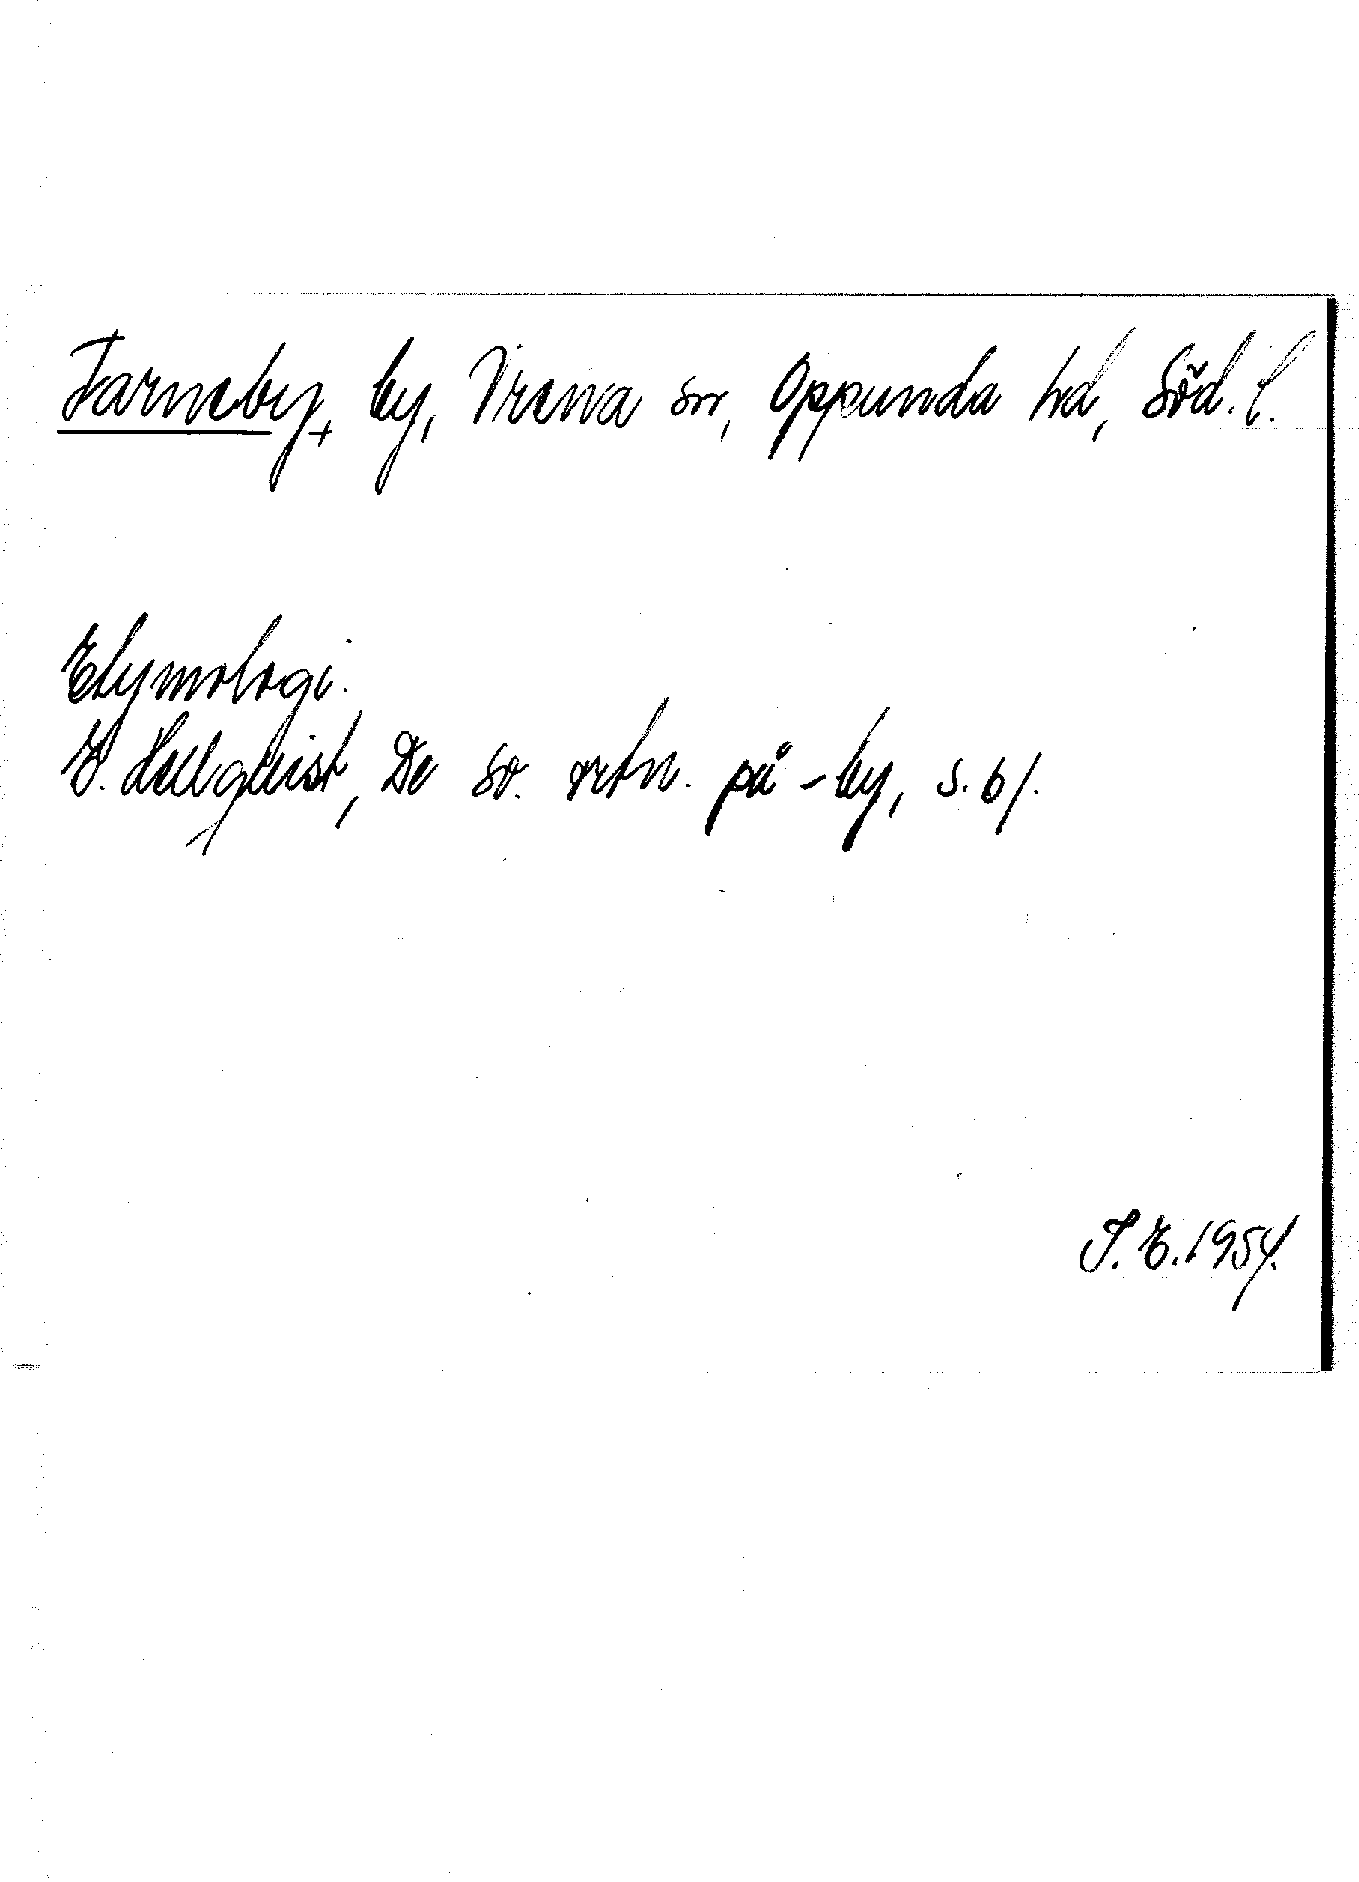 Farneby, by, Vrena sn, Oppunda hd, Söd. l.
Etymologi.
E. Hellquist, De sv. ortn. på -by, s. 61.
S. E. 1954.